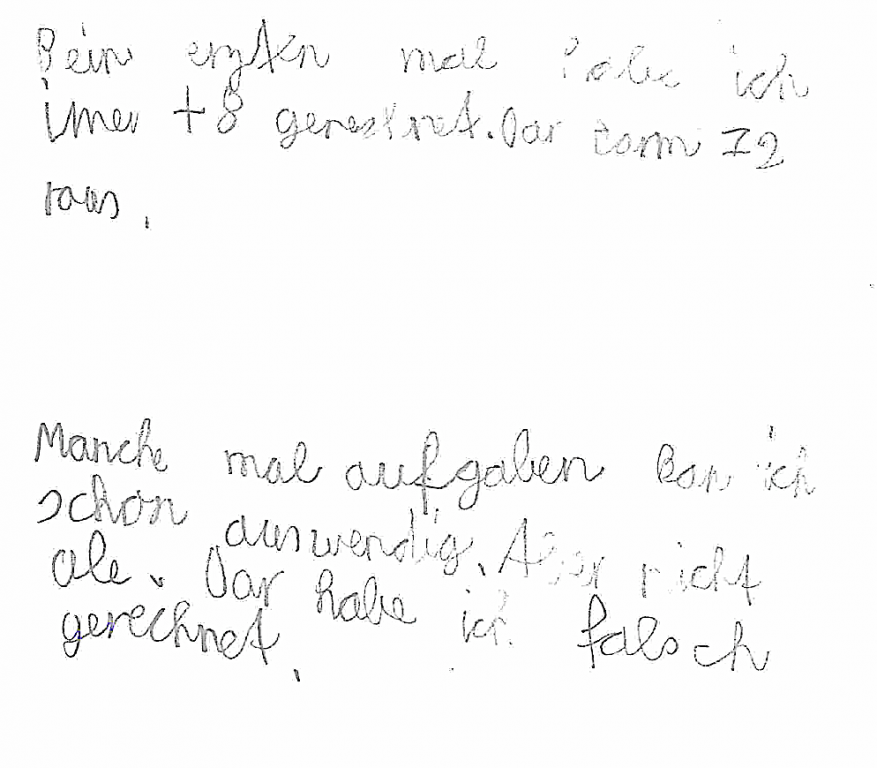 Bein ersten mal habe ich
imer +8 gerechnet. Dar cam 72
raus.
Manche mal aufgaben kan ich
schon auswendig. Aber nicht
ale. Dar habe ich falsch
gerechnet.